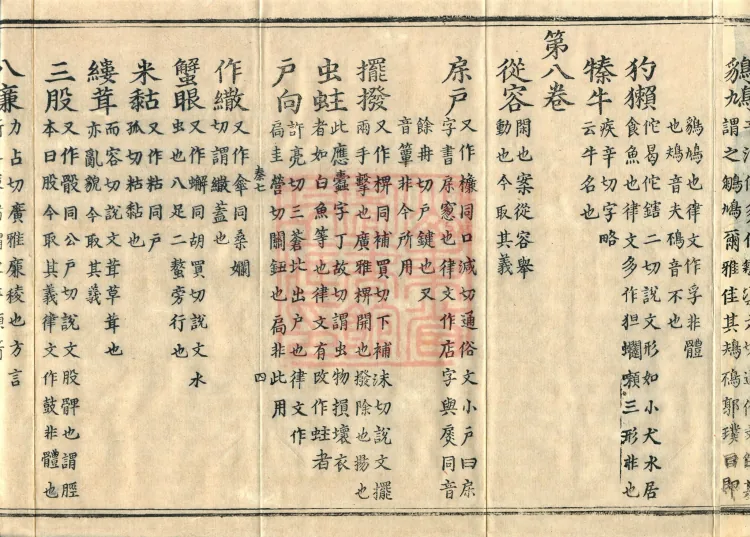 謂之鵴鳩爾雅佳其鳺鴀郭璞曰即
鷄鳩也律文作孚非體
也鳺音夫鴀音不也
犳獺
佗曷佗鎋二切說文形如小犬水居
食魚也律文多作狚蠟嚬三形非也
牛
疾辛切字略
云牛名也
第八卷
從容
閑也案從容舉
動也今取其義
㦿户
又作同口減切通俗文小戶曰㦿
字書㦿窻也律文作店字與扂同音
餘冉切戶鍵也又
音簟非今所用
擺撥
又作捭同補買切下補沫切說文擺
兩手擊也廣雅捭開也撥除也揚也
虫蛀
此應蠹字丁故切謂虫物損壞衣
者如白魚等也律文有改作蛀者
戶向
許亮切三蒼北出戶也律文作
扃圭營切關鈕也扃非此用
卷七 四
作繖
又作傘同桑爛
切謂繖蓋也
蟹眼
又作蠏同胡買切說文水
虫也八足二螯旁行也
米黏
又作粘同戶
孤切粘黏也
縷茸
而容切說文茸草茸也
亦亂貌今取其義
三股
又作骰同公戶切說文股髀也謂脛
本曰股今取其義律文作鼓非體也
八廉
力占切廣雅廉稜也方言